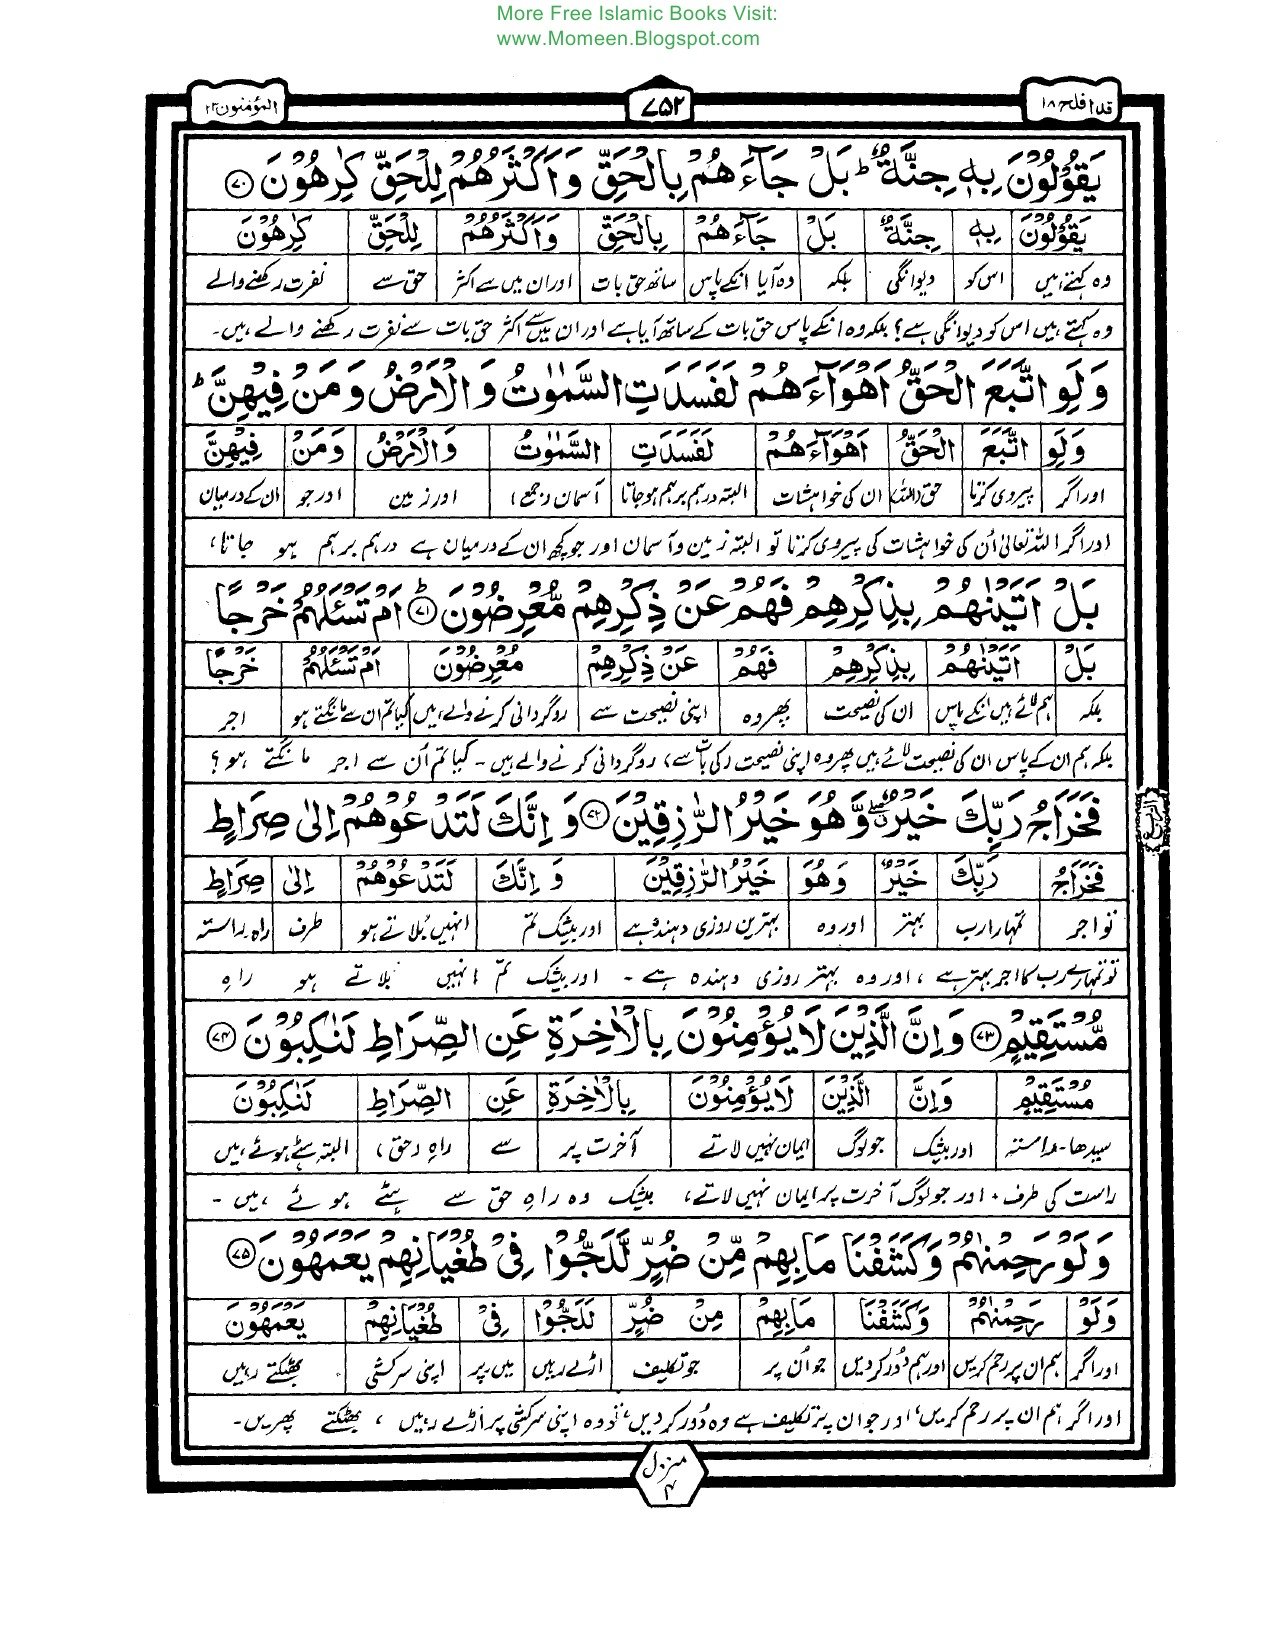 More Free Islamic Books Visit:
www.Momeen.Blogspot.com
قد افلح ۱۸
۷۵۲
المؤمنون ۲۳
يَقُوْلُوْنَ بِهٖ جِنَّةٌ ؕ بَلْ جَآءَهُمْ بِالْحَقِّ وَاَكْثَرُهُمْ لِلْحَقِّ كٰرِهُوْنَ ﴿۷۰﴾
يَقُوْلُوْنَ بِهٖ جِنَّةٌ بَلْ جَآءَهُمْ بِالْحَقِّ وَاَكْثَرُهُمْ لِلْحَقِّ كٰرِهُوْنَ
وہ کہتے ہیں اس کو دیوانگی بلکہ وہ آیا انکے پاس ساتھ حق بات اور ان میں سے اکثر حق سے نفرت رکھنے والے
وہ کہتے ہیں اس کو دیوانگی ہے؟ بلکہ وہ انکے پاس حق بات کے ساتھ آیا ہے اور ان میں سے اکثر حق بات سے نفرت رکھنے والے ہیں۔
وَلَوِ اتَّبَعَ الْحَقُّ اَهْوَآءَهُمْ لَفَسَدَتِ السَّمٰوٰتُ وَالْاَرْضُ وَمَنْ فِيْهِنَّ ؕ
وَلَوِ اتَّبَعَ الْحَقُّ اَهْوَآءَهُمْ لَفَسَدَتِ السَّمٰوٰتُ وَالْاَرْضُ وَمَنْ فِيْهِنَّ
اور اگر پیروی کرتا حق (اللہ) ان کی خواہشات البتہ درہم برہم ہوجاتا آسمان (جمع) اور زمین اور جو ان کے درمیان
اور اگر اللہ تعالیٰ اُن کی خواہشات کی پیروی کرتا تو البتہ زمین و آسمان اور جو کچھ ان کے درمیان ہے درہم برہم ہو جاتا،
بَلْ اَتَيْنٰهُمْ بِذِكْرِهِمْ فَهُمْ عَنْ ذِكْرِهِمْ مُّعْرِضُوْنَ ﴿۷۱﴾ؕ اَمْ تَسْئَلُهُمْ خَرْجًا
بَلْ اَتَيْنٰهُمْ بِذِكْرِهِمْ فَهُمْ عَنْ ذِكْرِهِمْ مُّعْرِضُوْنَ اَمْ تَسْئَلُهُمْ خَرْجًا
بلکہ ہم لائے ہیں انکے پاس ان کی نصیحت پھر وہ اپنی نصیحت سے روگردانی کرنے والے ہیں کیا تم ان سے مانگتے ہو اجر
بلکہ ہم ان کے پاس ان کی نصیحت لائے ہیں پھر وہ اپنی نصیحت (کی بات سے) روگردانی کرنے والے ہیں۔ کیا تم اُن سے اجر مانگتے ہو؟
فَخَرَاجُ رَبِّكَ خَيْرٌ ۖ وَّهُوَ خَيْرُ الرّٰزِقِيْنَ ﴿۷۲﴾ وَاِنَّكَ لَتَدْعُوْهُمْ اِلٰى صِرَاطٍ
الربع
فَخَرَاجُ رَبِّكَ خَيْرٌ وَهُوَ خَيْرُ الرّٰزِقِيْنَ وَاِنَّكَ لَتَدْعُوْهُمْ اِلٰى صِرَاطٍ
تو اجر تمہارا رب بہتر اور وہ بہترین روزی دہندہ ہے اور بیشک تم انہیں بُلاتے ہو طرف راہ۔راستہ
تو تمہارے رب کا اجر بہتر ہے، اور وہ بہتر روزی دہندہ ہے۔ اور بیشک تم انہیں بلاتے ہو راہِ
مُّسْتَقِيْمٍ ﴿۷۳﴾ وَاِنَّ الَّذِيْنَ لَا يُؤْمِنُوْنَ بِالْاٰخِرَةِ عَنِ الصِّرَاطِ لَنٰكِبُوْنَ ﴿۷۴﴾
مُسْتَقِيْمٍ وَاِنَّ الَّذِيْنَ لَا يُؤْمِنُوْنَ بِالْاٰخِرَةِ عَنِ الصِّرَاطِ لَنٰكِبُوْنَ
سیدھا۔راستہ اور بیشک جو لوگ ایمان نہیں لاتے آخرت پر سے راہ (حق) البتہ ہٹے ہوئے ہیں
راست کی طرف۔ اور جو لوگ آخرت پر ایمان نہیں لاتے، بیشک وہ راہِ حق سے ہٹے ہوئے ہیں۔
وَلَوْ رَحِمْنٰهُمْ وَكَشَفْنَا مَا بِهِمْ مِّنْ ضُرٍّ لَّلَجُّوْا فِيْ طُغْيَانِهِمْ يَعْمَهُوْنَ ﴿۷۵﴾
وَلَوْ رَحِمْنٰهُمْ وَكَشَفْنَا مَا بِهِمْ مِنْ ضُرٍّ لَلَجُّوْا فِيْ طُغْيَانِهِمْ يَعْمَهُوْنَ
اور اگر ہم ان پر رحم کریں اور ہم دُور کردیں جو اُن پر جو تکلیف اڑے رہیں میں۔پر اپنی سرکشی بھٹکتے رہیں
اور اگر ہم ان پر رحم کریں، اور جو ان پر تکلیف ہے وہ دُور کردیں، تو وہ اپنی سرکشی پر اَڑے رہیں، بھٹکتے پھریں۔
منزل ۴